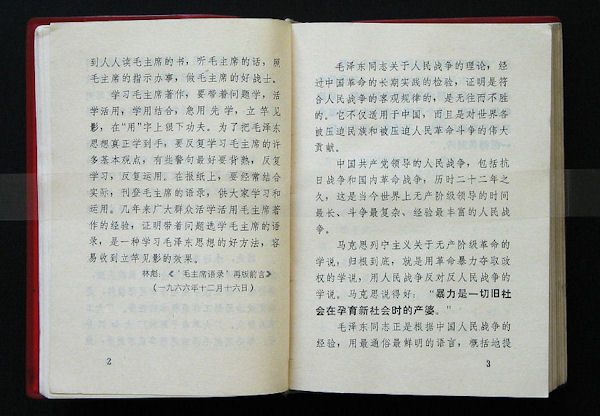 到人人读毛主席的书，听毛主席的话，照
毛主席的指示办事，做毛主席的好战士。
学习毛主席著作，要带着问题学，活
学活用，学用结合，急用先学，立竿见
影，在“用”字上狠下功夫。为了把毛泽东
思想真正学到手，要反复学习毛主席的许
多基本观点，有些警句最好要背熟，反复
学习，反复运用。在报纸上，要经常结合
实际，刊登毛主席的语录，供大家学习和
运用。几年来广大群众活学活用毛主席著
作的经验，证明带着问题选学毛主席的语
录，是一种学习毛泽东思想的好方法，容
易收到立竿见影的效果。
林彪：《‘毛主席语录’再版前言》
（一九六六年十二月十六日）
2
毛泽东同志关于人民战争的理论，经
过中国革命的长期实践的检验，证明是符
合人民战争的客观规律的，是无往而不胜
的。它不仅适用于中国，而且是对世界各
被压迫民族和被压迫人民革命斗争的伟大
贡献。
中国共产党领导的人民战争，包括抗
日战争和国内革命战争，历时二十二年之
久，这是当今世界上无产阶级领导的时间
最长、斗争最复杂、经验最丰富的人民战
争。
马克思列宁主义关于无产阶级革命的
学说，归根到底，就是用革命暴力夺取政
权的学说，用人民战争反对反人民战争的
学说。马克思说得好：“暴力是一切旧社
会在孕育新社会时的产婆。”
毛泽东同志正是根据中国人民战争的
经验，用最通俗最鲜明的语言，概括地提
3